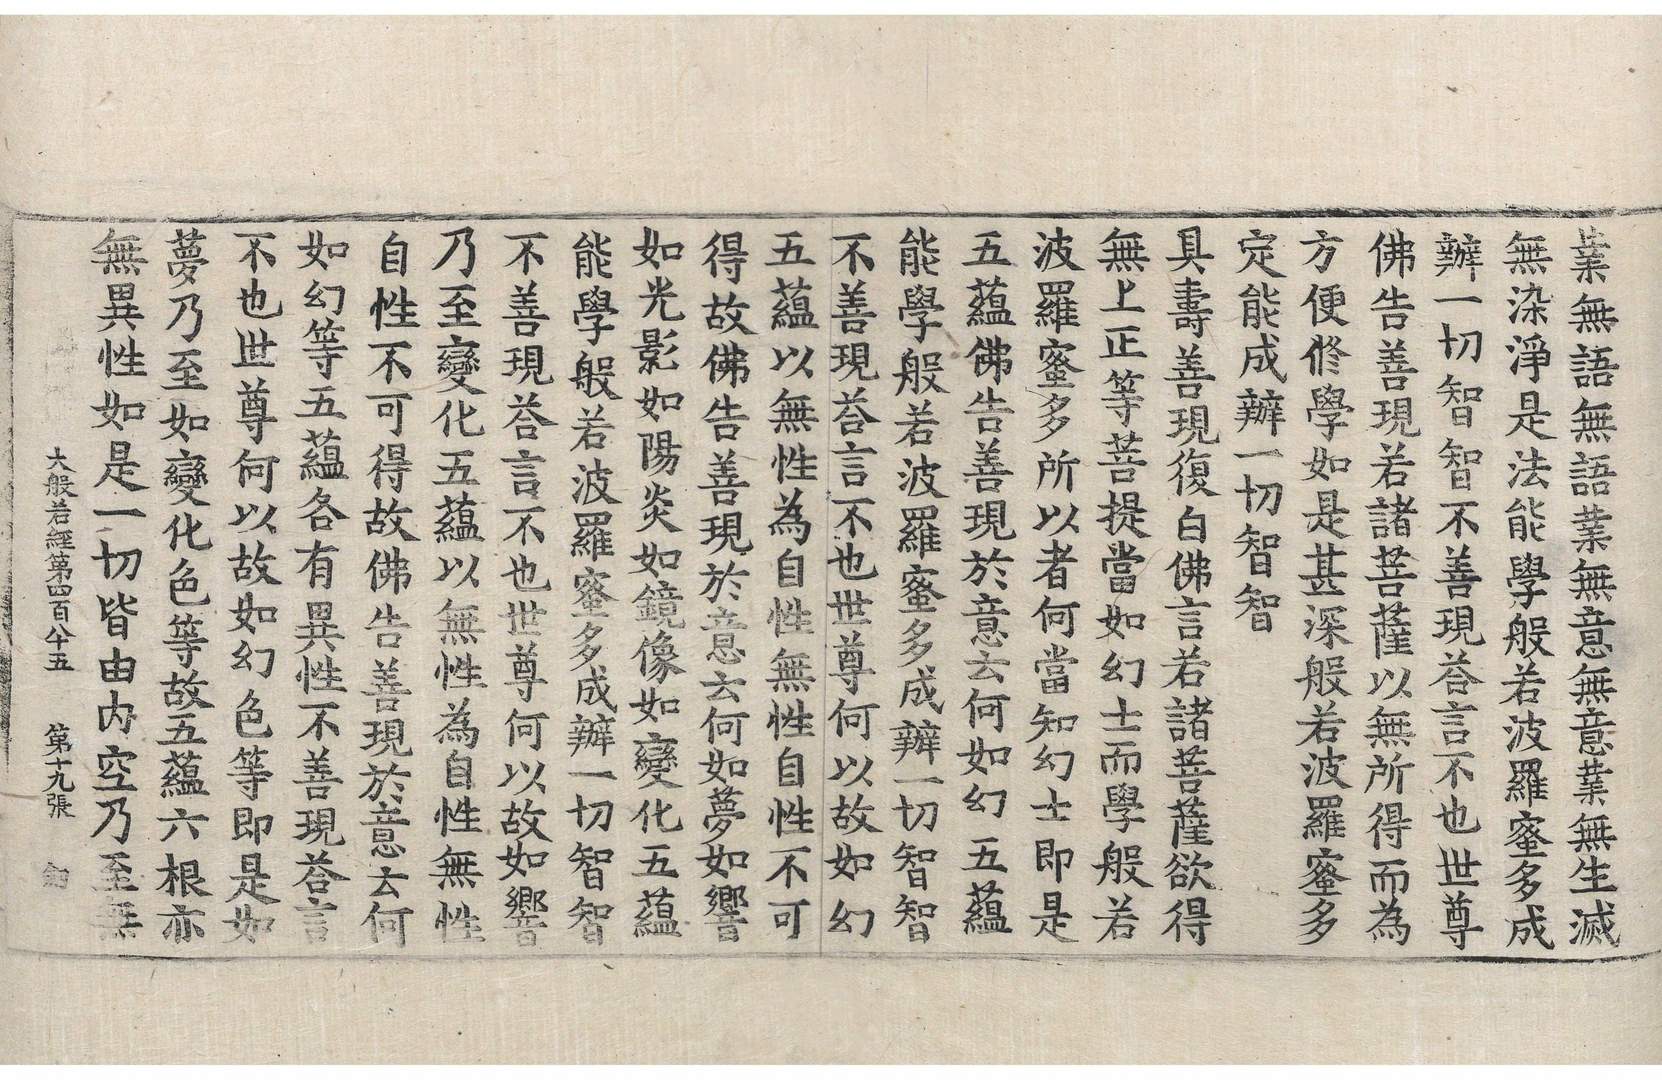 業無語無語業無意無意業無生滅
無染淨是法能學般若波羅蜜多成
辦一切智智不善現荅言不也世尊
佛告善現若諸菩薩以無所得而為
方便修學如是甚深般若波羅蜜多
定能成辦一切智智
具壽善現復白佛言若諸菩薩欲得
無上正等菩提當如幻士而學般若
波羅蜜多所以者何當知幻士即是
五蘊佛告善現於意云何如幻五蘊
能學般若波羅蜜多成辦一切智智
不善現荅言不也世尊何以故如幻
五蘊以無性為自性無性自性不可
得故佛告善現於意云何如夢如響
如光影如陽炎如鏡像如變化五蘊
能學般若波羅蜜多成辦一切智智
不善現荅言不也世尊何以故如響
乃至變化五蘊以無性為自性無性
自性不可得故佛告善現於意云何
如幻等五蘊各有異性不善現荅言
不也世尊何以故如幻色等即是如
夢乃至如變化色等故五蘊六根亦
無異性如是一切皆由內空乃至無
大般若經第四百八十五 第十九張